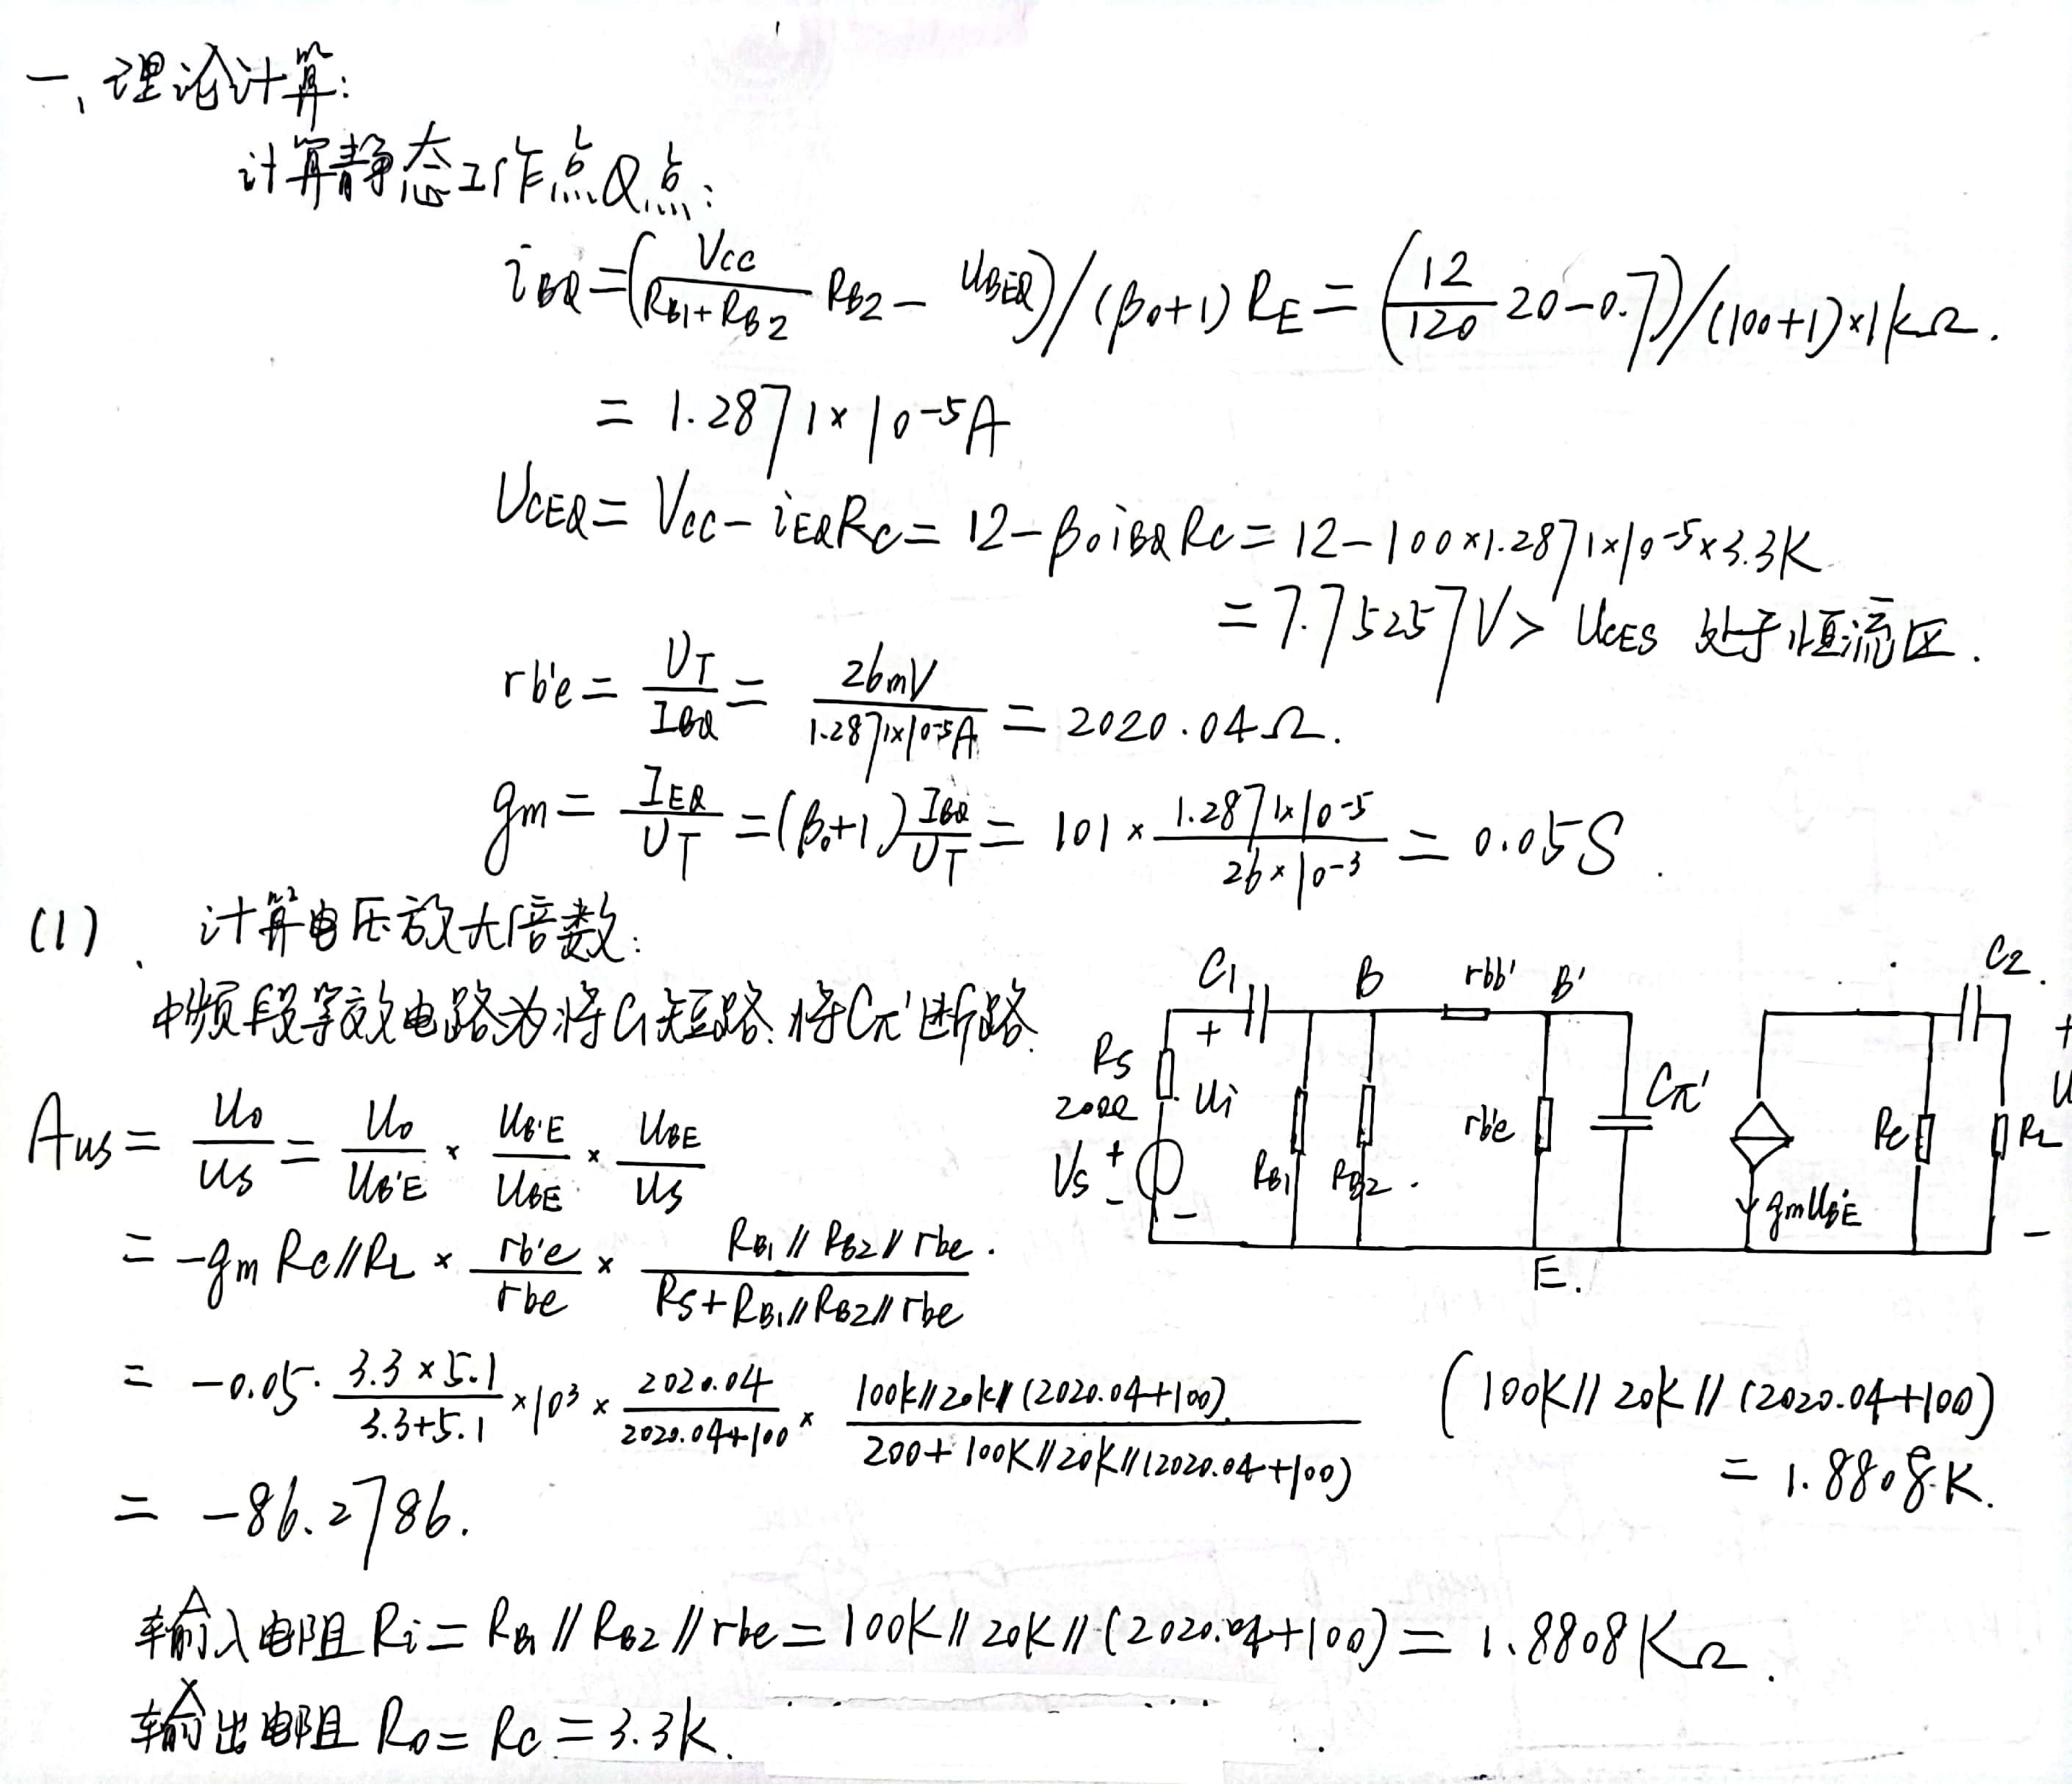 一、理论计算:
计算静态工作点Q点:
iBQ=(Vcc/(RB1+RB2) RB2 - UBEQ)/(β0+1)RE = (12/120 20-0.7)/(100+1)×1kΩ.
= 1.2871×10^-5A
UCEQ= Vcc-iEQRc= 12-β0iBQRc= 12-100×1.2871×10^-5×3.3K
=7.75257V> UCES 处于恒流区.
rb'e= UT/IBQ= 26mV/1.2871×10^-5A = 2020.04Ω.
gm= IEQ/UT =(β0+1)IBQ/UT= 101× 1.2871×10^-5/26×10^-3 = 0.05S.
(1)、计算电压放大倍数:
中频段等效电路为将C1短路.将Cπ'断路.
C1 B rbb' B' C2
Rs 200Ω + Ui RB1 RB2 rb'e Cπ' Rc RL +
U
Vs + - - gmUB'E -
E.
Aus= Uo/Us = Uo/UB'E × UB'E/UBE × UBE/Us
= -gm Rc//RL × rb'e/rbe × RB1//RB2//rbe/Rs+RB1//RB2//rbe
= -0.05· 3.3×5.1/3.3+5.1 ×10^3 × 2020.04/2020.04+100 × 100k//20k//(2020.04+100)/200+100K//20K//(2020.04+100)
(100K//20K//(2020.04+100)
= 1.8808K.
= -86.2786.
输入电阻Ri= RB1//RB2//rbe=100K//20K//(2020.04+100)= 1.8808KΩ.
输出电阻Ro= Rc=3.3K.